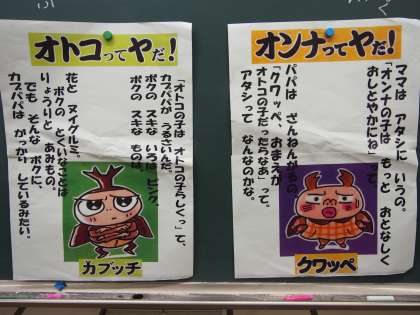 オトコってヤだ!
「オトコの子は オトコの子らしくっ」て、
カブパパが うるさいんだ。
ボクの スキな いろは ピンク、
ボクの スキな ものは、
花と ヌイグルミ。
ボクの とくいなことは
りょうりと あみもの。
でも そんな ボクに、
カブパパは がっかり しているみたい。
カブッチ
オンナってヤだ!
ママは アタシに いうの。
「オンナの子は もっと おとなしく
おしとやかにね」って。
パパは ざんねんがるの
「クワッペ、おまえが
オトコの子だったらなあ」って。
アタシって なんなのかな。
クワッペ